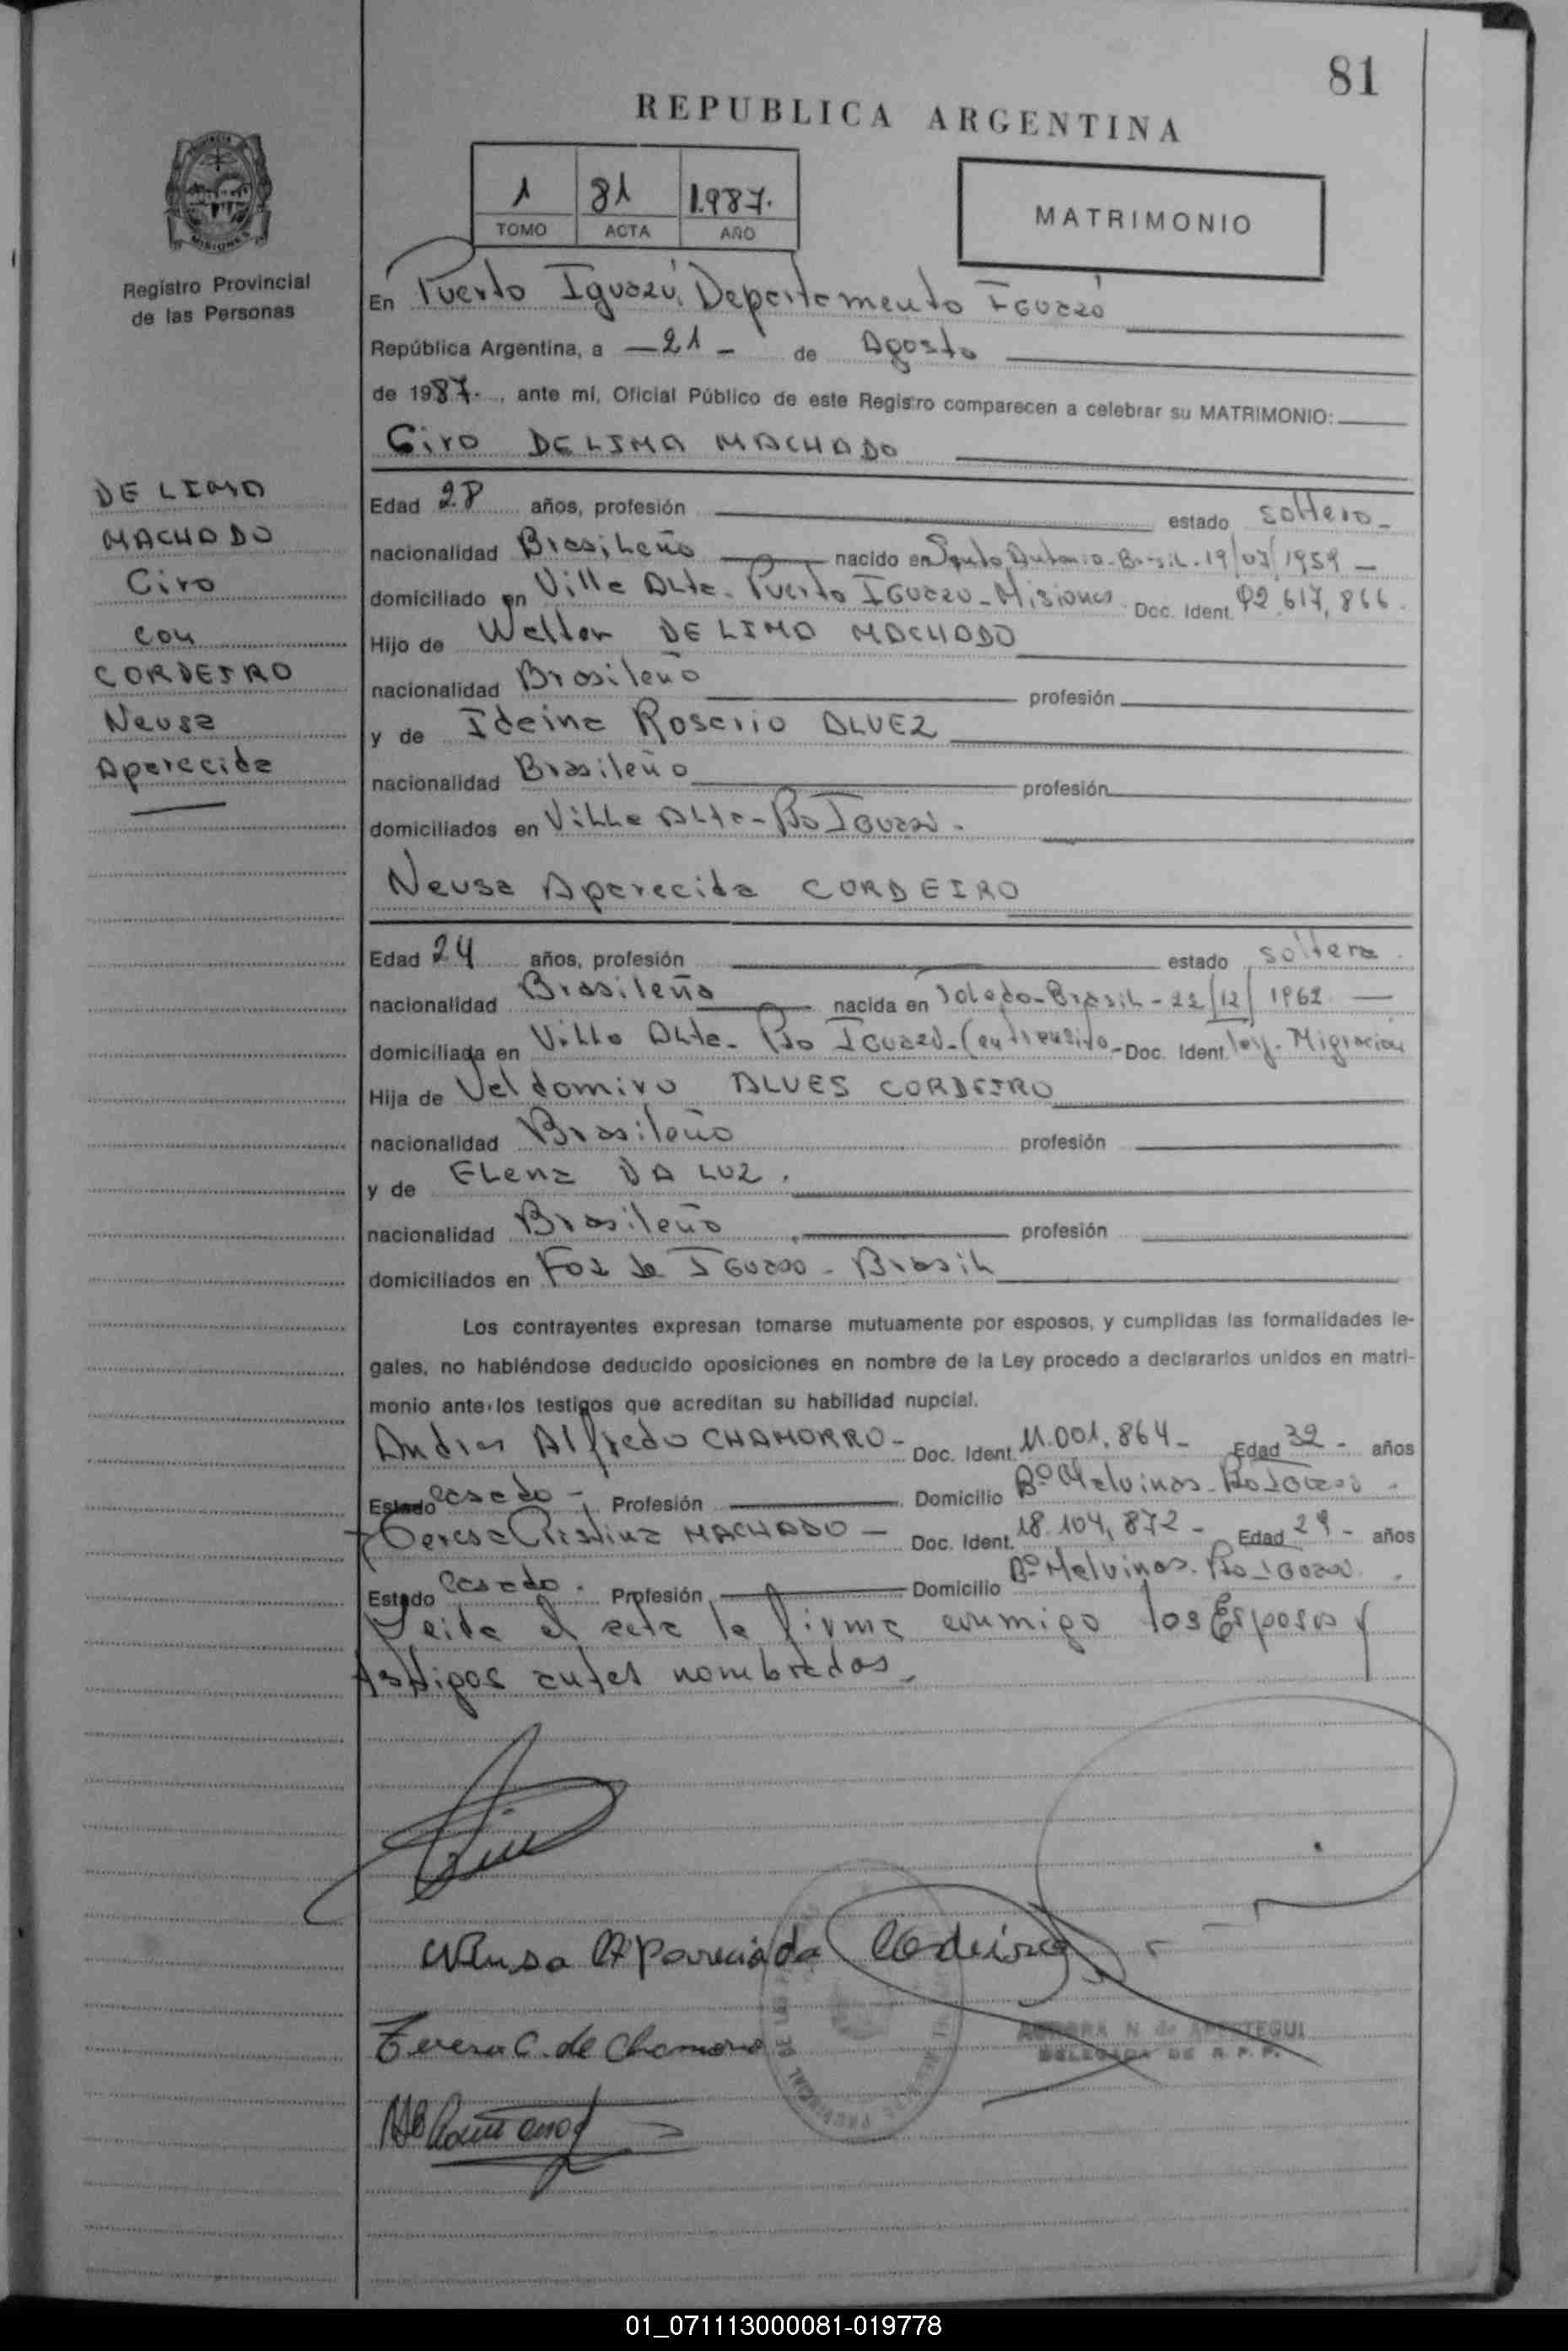 81
REPUBLICA ARGENTINA
1 81 1.987.
TOMO ACTA AÑO
MATRIMONIO
Registro Provincial
de las Personas
En Puerto Iguazú, Departamento Iguazú
República Argentina, a —21— de Agosto
de 1987., ante mí, Oficial Público de este Registro comparecen a celebrar su MATRIMONIO:
Ciro DE LIMA MACHADO
DE LIMA
MACHADO
Ciro
con
CORDEIRO
Neusa
Aparecida
Edad 28 años, profesión estado soltero-
nacionalidad Brasileño nacido en Santo Antonio-Brasil-19/07/1959—
domiciliado en Villa Alta-Puerto Iguazú-Misiones. Doc. Ident. 92.617,866.
Hijo de Walter DE LIMA MACHADO
nacionalidad Brasileño profesión
y de Ideina Rosario ALVEZ
nacionalidad Brasileño profesión
domiciliados en Villa Alta-Pto Iguazú.
Neusa Aparecida CORDEIRO
Edad 24 años, profesión estado soltera.
nacionalidad Brasileña nacida en Toledo-Brasil-22/12/1962—
domiciliada en Villa Alta-Pto Iguazú-(en transito-Doc. Ident. ley-Migración
Hija de Valdomiro ALVES CORDEIRO
nacionalidad Brasileño profesión
y de Elena DA LUZ.
nacionalidad Brasileño profesión
domiciliados en Foz de Iguazo-Brasil
Los contrayentes expresan tomarse mutuamente por esposos, y cumplidas las formalidades le-
gales, no habiéndose deducido oposiciones en nombre de la Ley procedo a declararlos unidos en matri-
monio ante los testigos que acreditan su habilidad nupcial.
Andres Alfredo CHAMORRO- Doc. Ident. 11.001.864- Edad 32- años
Estado casado-; Profesión Domicilio Bº Malvinas-Pto Iguazú.
Teresa Cristina MACHADO— Doc. Ident. 18.104,872- Edad 29- años
Estado casado. Profesión Domicilio Bº Malvinas-Pto Iguazú.
Leida el acta la firma conmigo los Esposos y
testigos antes nombrados.
Neusa Aparecida Cordeiro
AURORA N de APESTEGUI
DELEGADA DE R.P.P.
Teresa C. de Chamorro
01_071113000081-019778